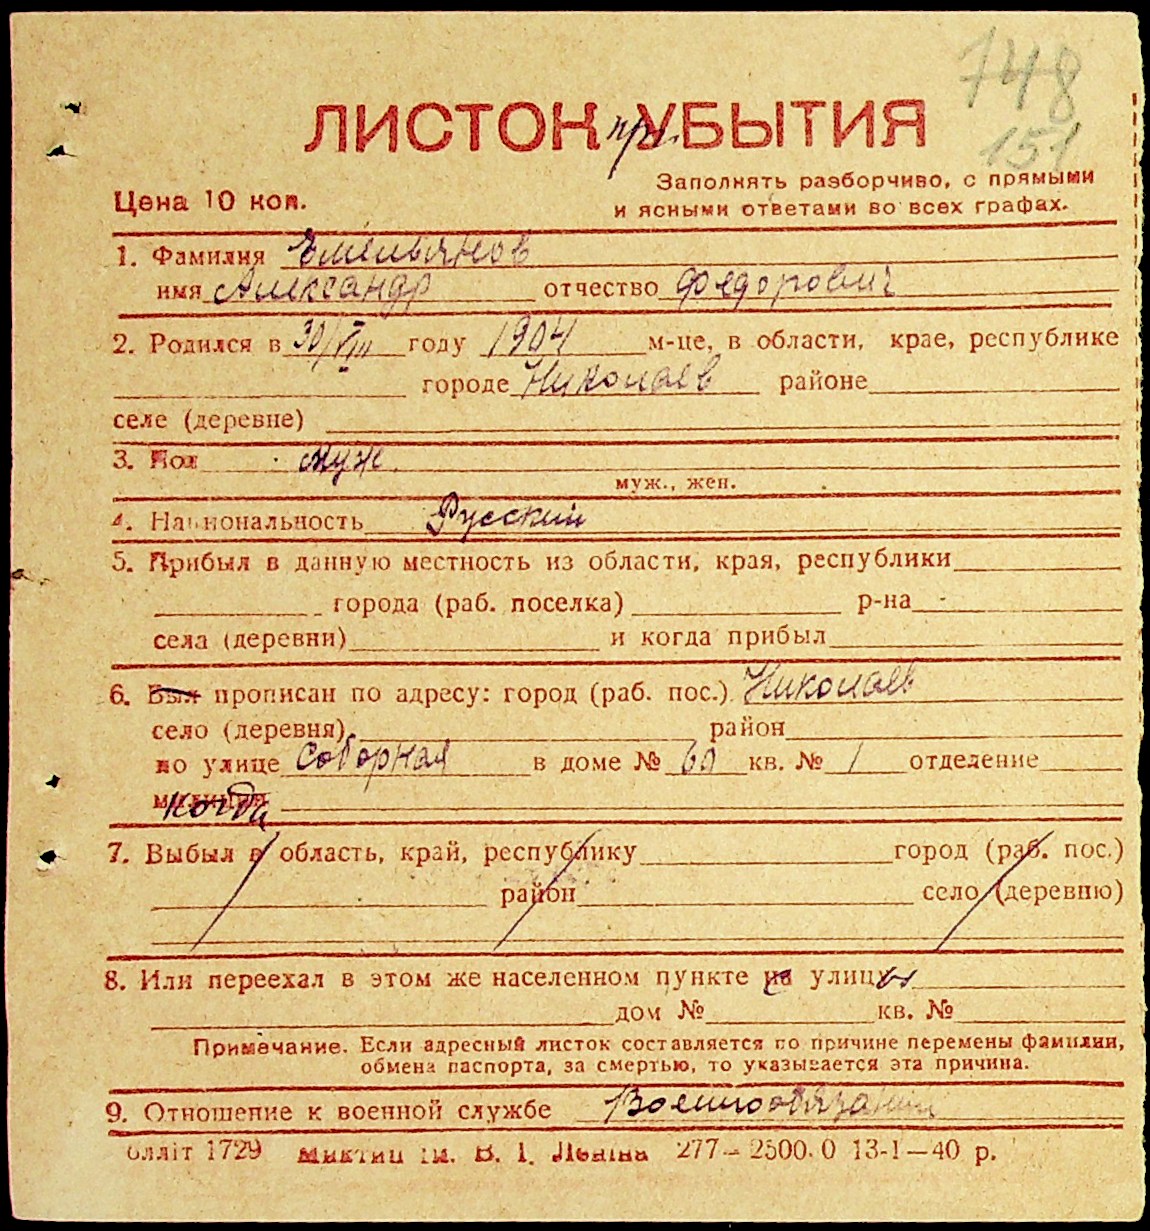 748
151
ЛИСТОК при УБЫТИЯ
Заполнять разборчиво, с прямыми
Цена 10 коп. и ясными ответами во всех графах.
1. Фамилия Емельянов
имя Александр отчество Федорович
2. Родился в 30/VIII году 1904 м-це, в области, крае, республике
городе Николаев районе
селе (деревне)
3. Пол муж
муж., жен.
4. Национальность Русский
5. Прибыл в данную местность из области, края, республики
города (раб. поселка) р-на
села (деревни) и когда прибыл
6. Был прописан по адресу: город (раб. пос.) Николаев
село (деревня) район
по улице Соборная в доме № 60 кв. № 1 отделение
милиции когда
7. Выбыл в область, край, республику город (раб. пос.)
район село (деревню)
8. Или переехал в этом же населенном пункте на улицу ы
дом № кв. №
Примечание. Если адресный листок составляется по причине перемены фамилии,
обмена паспорта, за смертью, то указывается эта причина.
9. Отношение к военной службе Военнообязаный
олліт 1729 ім. В. І. Леніна 277—2500.0 13-1—40 р.